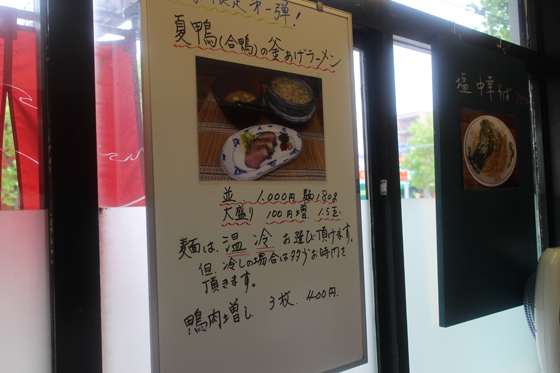 限定第一弾!
夏鴨(合鴨)の釜あげラーメン
並 1,000円 麺180g
大盛り 100円増 1.5玉
麺は、温 冷 お選び頂けます。
但、冷しの場合は多少お時間を
頂きます。
鴨肉増し 3枚、400円.
塩中華そば